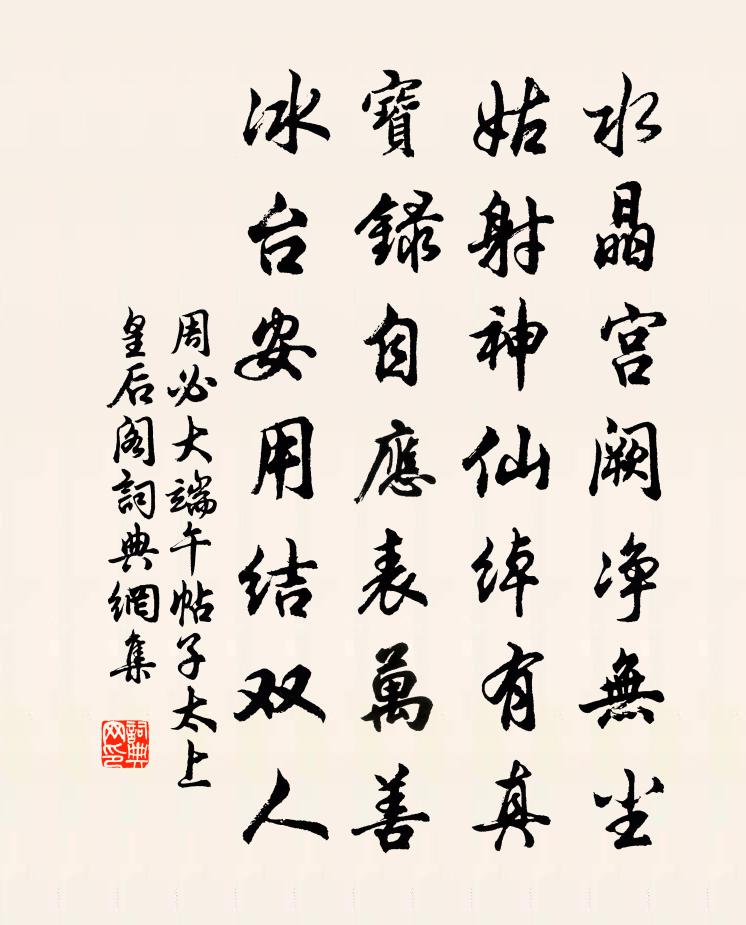 水晶宫阙净無尘
姑射神仙绰有真
寶録自應表萬善
冰台安用结双人
周必大端午帖子太上
皇后阁詞典網集
詞典网印